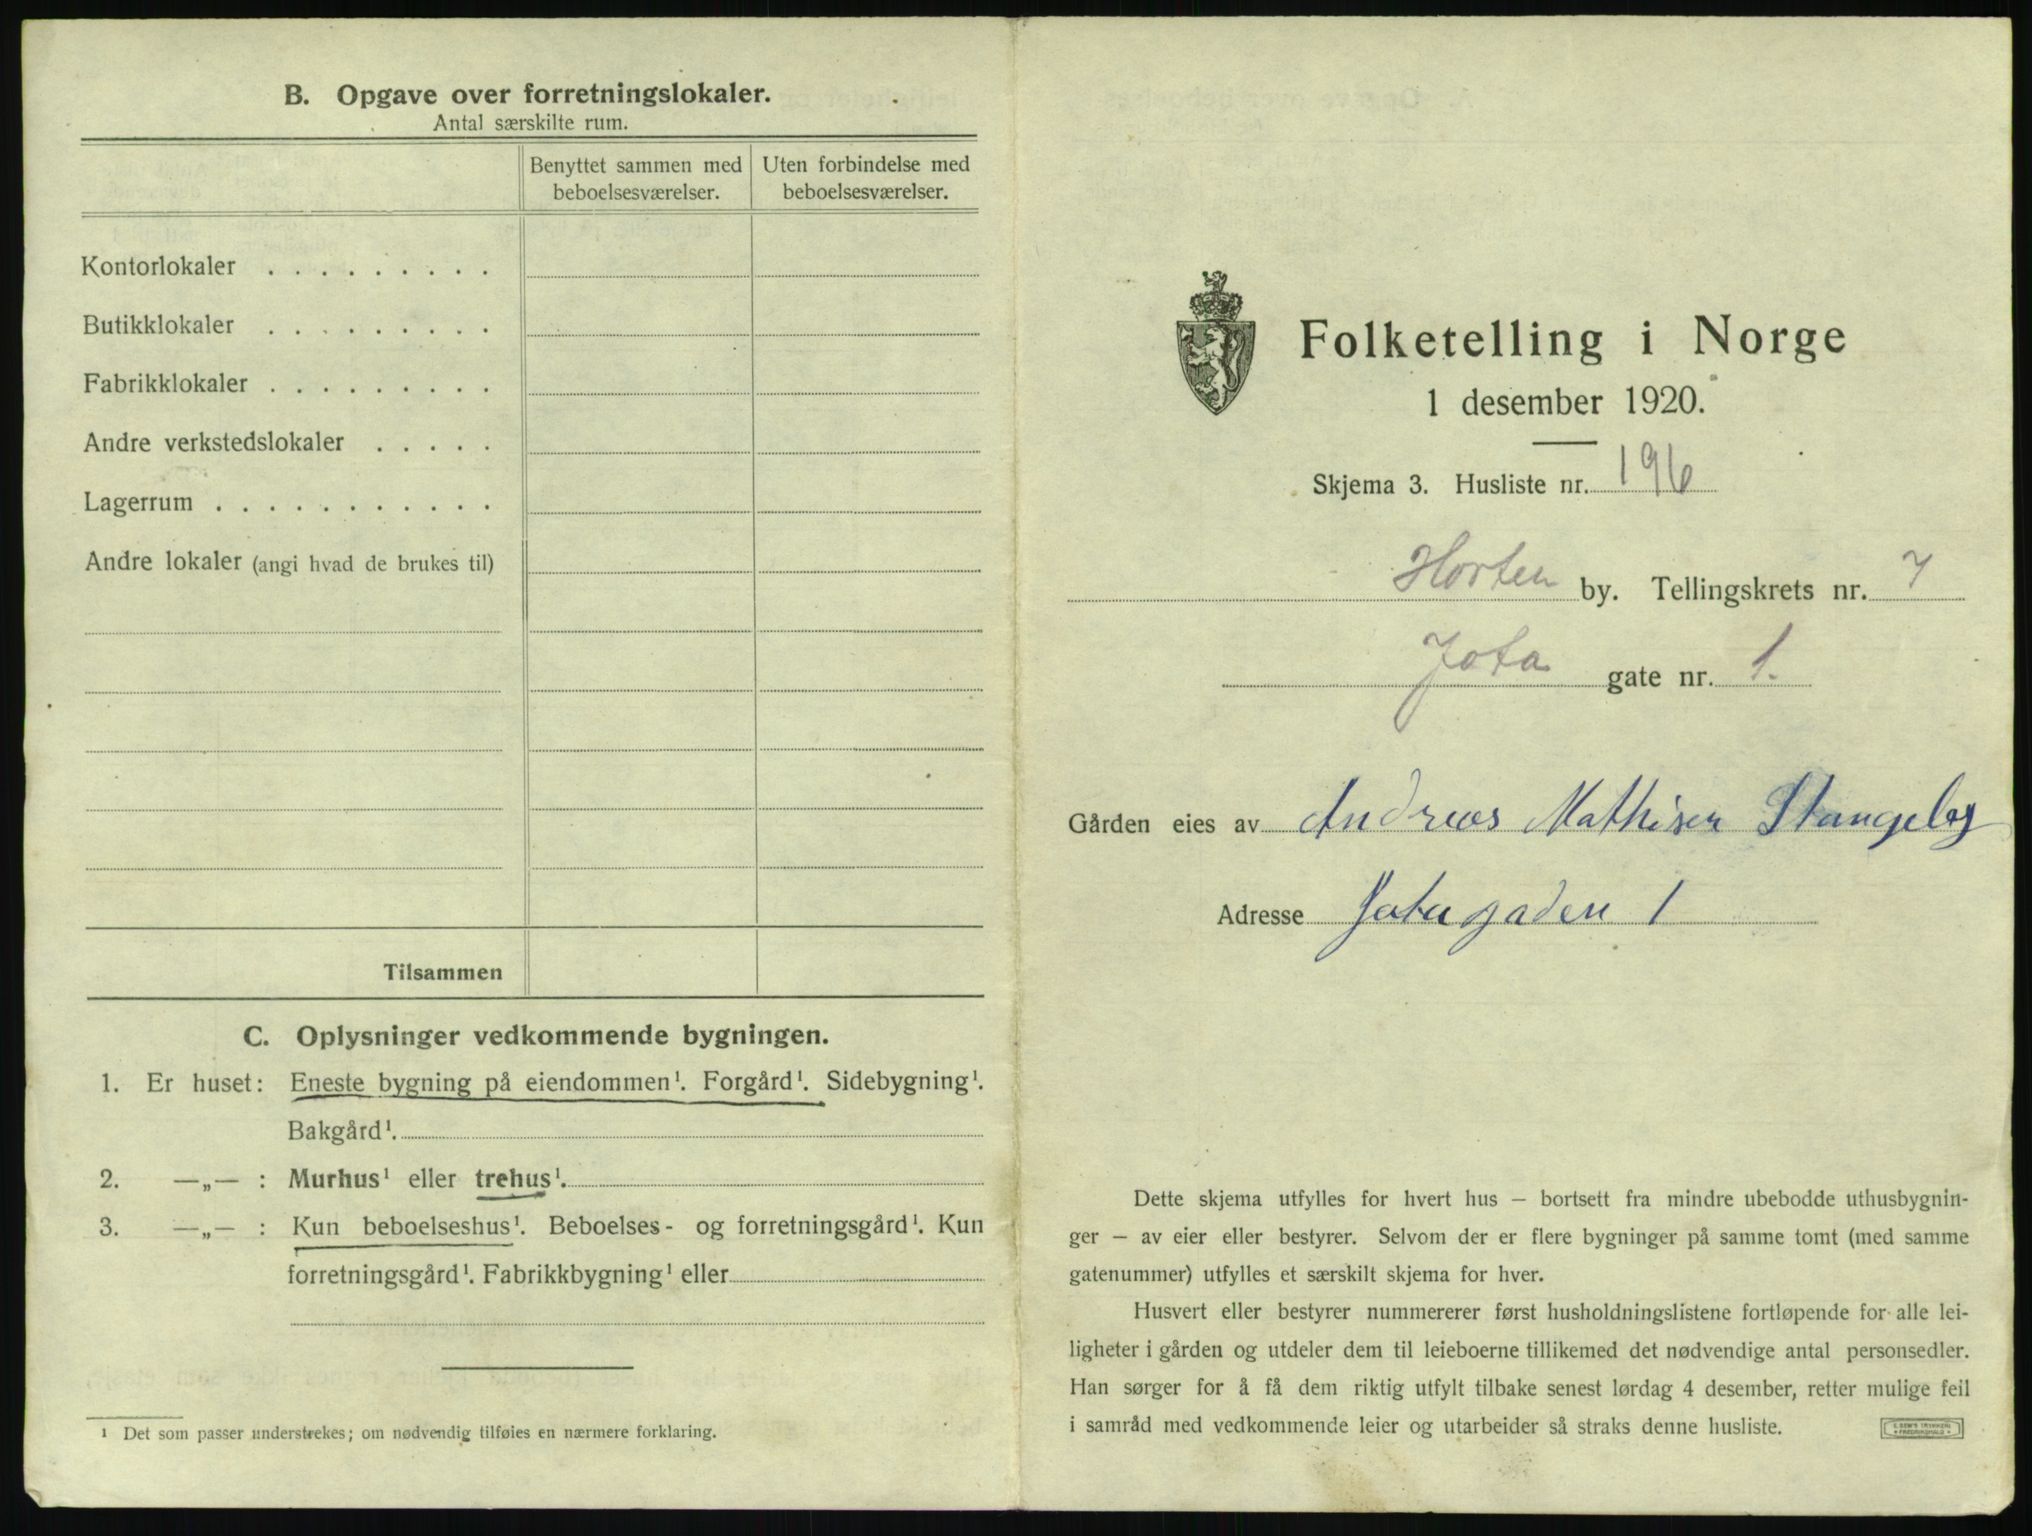 B. Opgave over forretningslokaler.
Antal særskilte rum.
Benyttet sammen med beboelsesværelser.
Uten forbindelse med beboelsesværelser.
Kontorlokaler . . . . . . . . .
Butikklokaler . . . . . . . . .
Fabrikklokaler . . . . . . . . .
Andre verkstedslokaler . . . . .
Lagerrum . . . . . . . . . . .
Andre lokaler (angi hvad de brukes til)
Tilsammen
C. Oplysninger vedkommende bygningen.
1. Er huset: Eneste bygning på eiendommen¹. Forgård¹. Sidebygning¹.
Bakgård¹.
2. —„— : Murhus¹ eller trehus¹.
3. —„— : Kun beboelseshus¹. Beboelses- og forretningsgård¹. Kun
forretningsgård¹. Fabrikkbygning¹ eller
¹ Det som passer understrekes; om nødvendig tilføies en nærmere forklaring.
Folketelling i Norge
1 desember 1920.
Skjema 3. Husliste nr. 196
Horten by. Tellingskrets nr. 7
Jota gate nr. 1.
Gården eies av Andreas Mathisen Stangeby
Adresse Jotagaden 1
Dette skjema utfylles for hvert hus — bortsett fra mindre ubebodde uthusbygnin-
ger — av eier eller bestyrer. Selvom der er flere bygninger på samme tomt (med samme
gatenummer) utfylles et særskilt skjema for hver.
Husvert eller bestyrer nummererer først husholdningslistene fortløpende for alle lei-
ligheter i gården og utdeler dem til leieboerne tillikemed det nødvendige antal personsedler.
Han sørger for å få dem riktig utfylt tilbake senest lørdag 4 desember, retter mulige feil
i samråd med vedkommende leier og utarbeider så straks denne husliste.